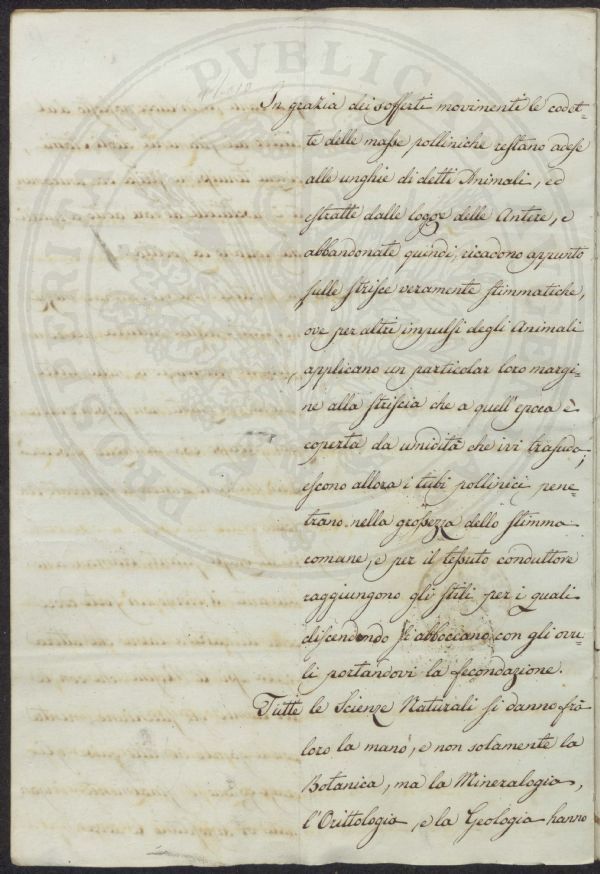 In grazia dei sofferti movimenti le codet-
te delle masse polliniche restano adese
alle unghie di detti Animali, ed
estratte dalle logge delle Antere, e
abbandonate quindi, ricadono appunto
sulle strisce veramente stimmatiche,
ove per altri impulsi degli Animali
applicano un particolar loro margi-
ne alla striscia che a quell'epoca è
coperta da umidità che ivi trasuda;
escono allora i tubi pollinici pene-
trano nella grossezza dello stimma
comune, e per il tessuto conduttore
raggiungono gli stili per i quali
discendendo si abboccano con gli ovu-
li portandovi la fecondazione.
Tutte le Scienze Naturali si danno frà
loro la mano, e non solamente la
Botanica, ma la Mineralogia,
l'Orittologia, e la Geologia hanno